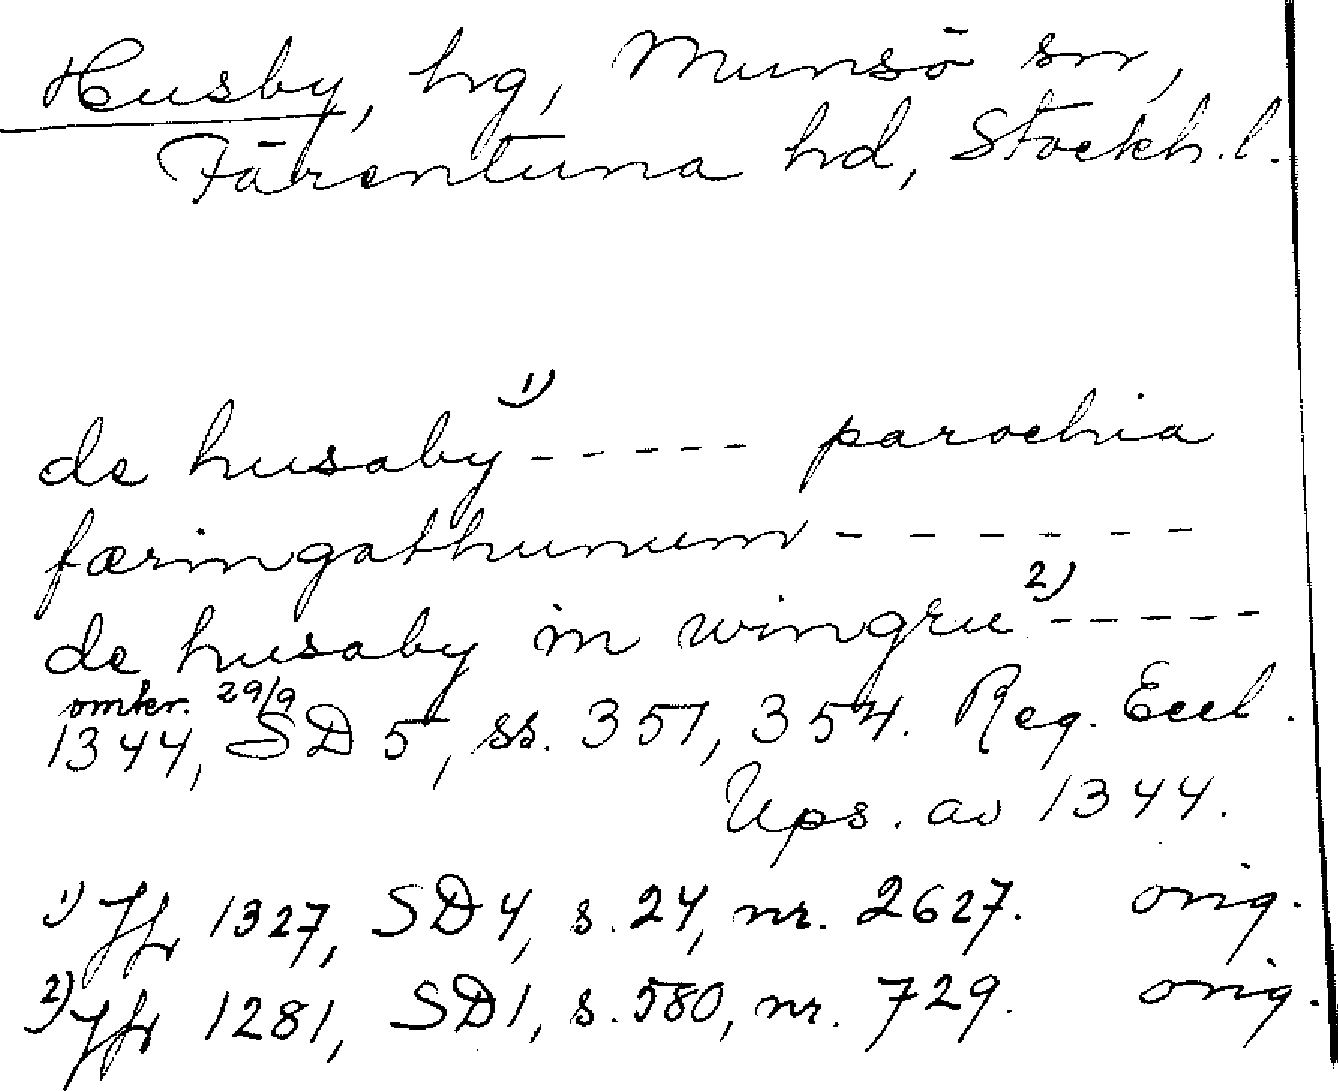 Husby, hg, Munsö sn,
Färentuna hd, Stockh. l.
de husaby 1) - - - - - parochia
færingathunum - - - - - -
de husaby in wingru 2) - - - - -
omkr. 29/9
1344, SD 5, ss. 351, 354. Reg. Eccl.
Ups. av 1344.
1) Jfr 1327, SD 4, s. 24, nr. 2627. orig.
2) Jfr 1281, SD 1, s. 580, nr. 729. orig.